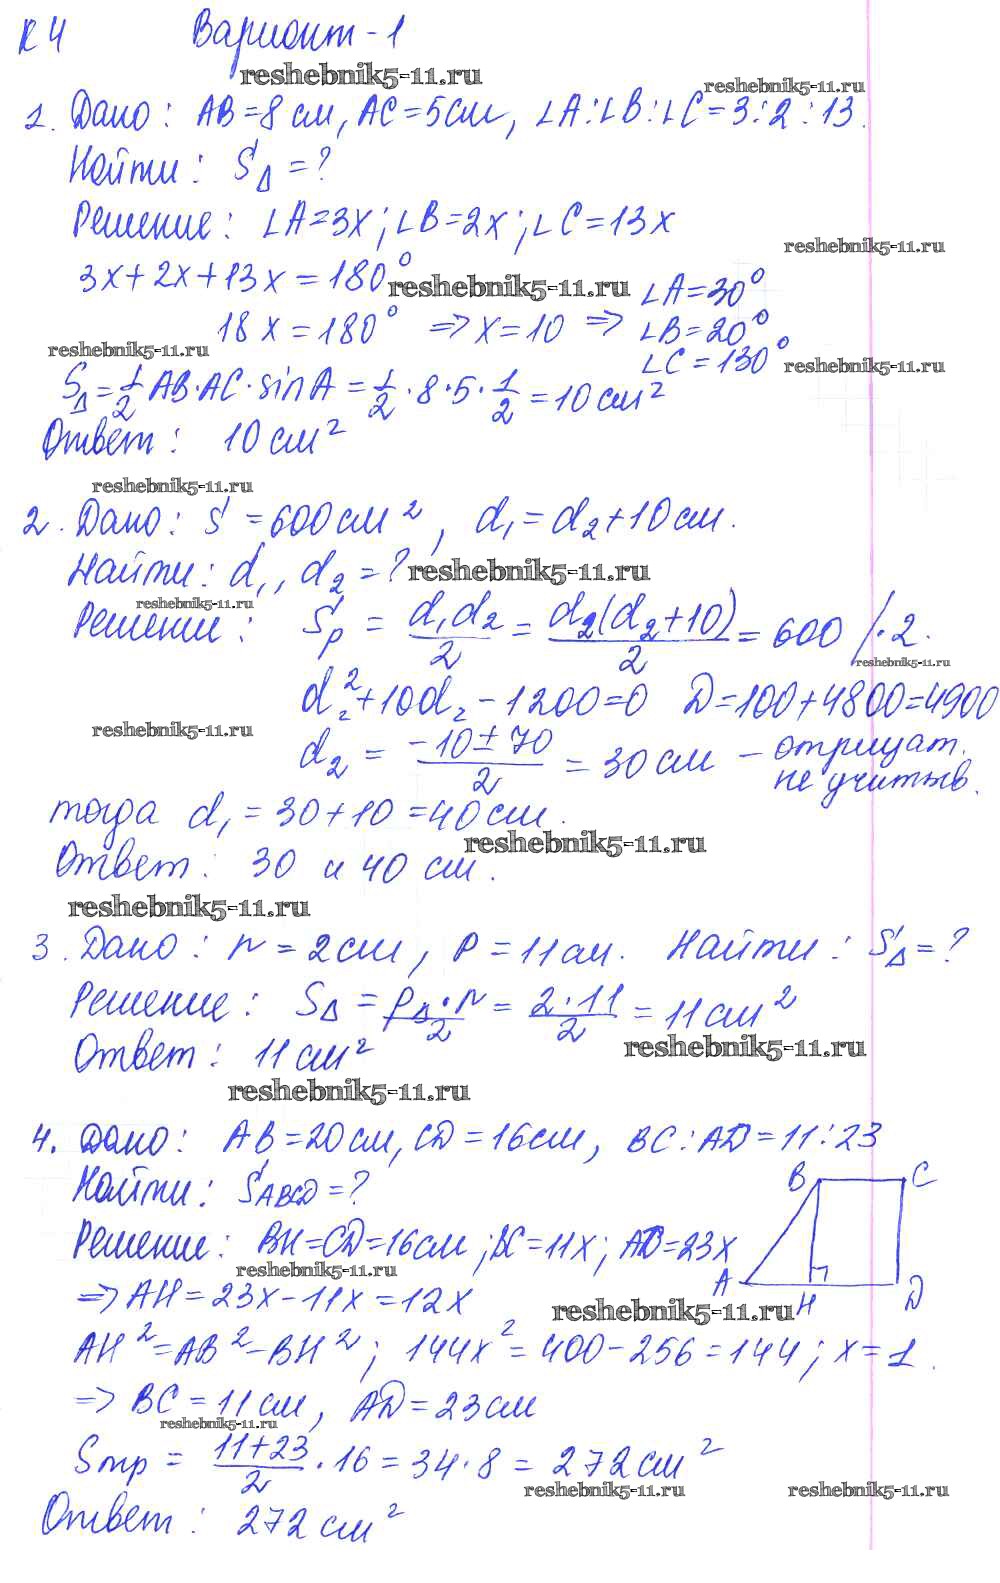 К 4 Вариант-1
reshebnik5-11.ru
reshebnik5-11.ru
1. Дано: AB=8 см, AC=5см, ∠A:∠B:∠C=3:2:13.
Найти: S△=?
Решение: ∠A=3x; ∠B=2x; ∠C=13x
reshebnik5-11.ru
3x+2x+13x=180° reshebnik5-11.ru ∠A=30°
18x=180° ⇒ x=10 ⇒ ∠B=20°
reshebnik5-11.ru ∠C=130° reshebnik5-11.ru
S△=1/2 AB·AC·sinA=1/2·8·5·1/2=10см²
Ответ: 10 см²
reshebnik5-11.ru
2. Дано: S=600см², d₁=d₂+10см.
Найти: d₁, d₂=? reshebnik5-11.ru
reshebnik5-11.ru
Решение: Sр = d₁d₂/2 = d₂(d₂+10)/2 = 600 /·2.
reshebnik5-11.ru
d₂²+10d₂-1200=0 D=100+4800=4900
reshebnik5-11.ru
d₂ = -10±70/2 = 30см – отрицат.
не учитыв.
тогда d₁=30+10=40см.
reshebnik5-11.ru
Ответ: 30 и 40 см.
reshebnik5-11.ru
3. Дано: r=2см, P=11см. Найти: S△=?
Решение: S△=P△·r/2=2·11/2=11см²
reshebnik5-11.ru
Ответ: 11см²
reshebnik5-11.ru
4. Дано: AB=20см, CD=16см, BC:AD=11:23
Найти: SABCD=?
B C
Решение: BH=CD=16см; BC=11x; AD=23x
reshebnik5-11.ru
A H D
⇒ AH=23x-11x=12x
reshebnik5-11.ru
AH²=AB²-BH²; 144x²=400-256=144; x=1.
⇒ BC=11см, AD=23см
reshebnik5-11.ru
Sтр = 11+23/2·16=34·8=272см²
reshebnik5-11.ru reshebnik5-11.ru
Ответ: 272 см²